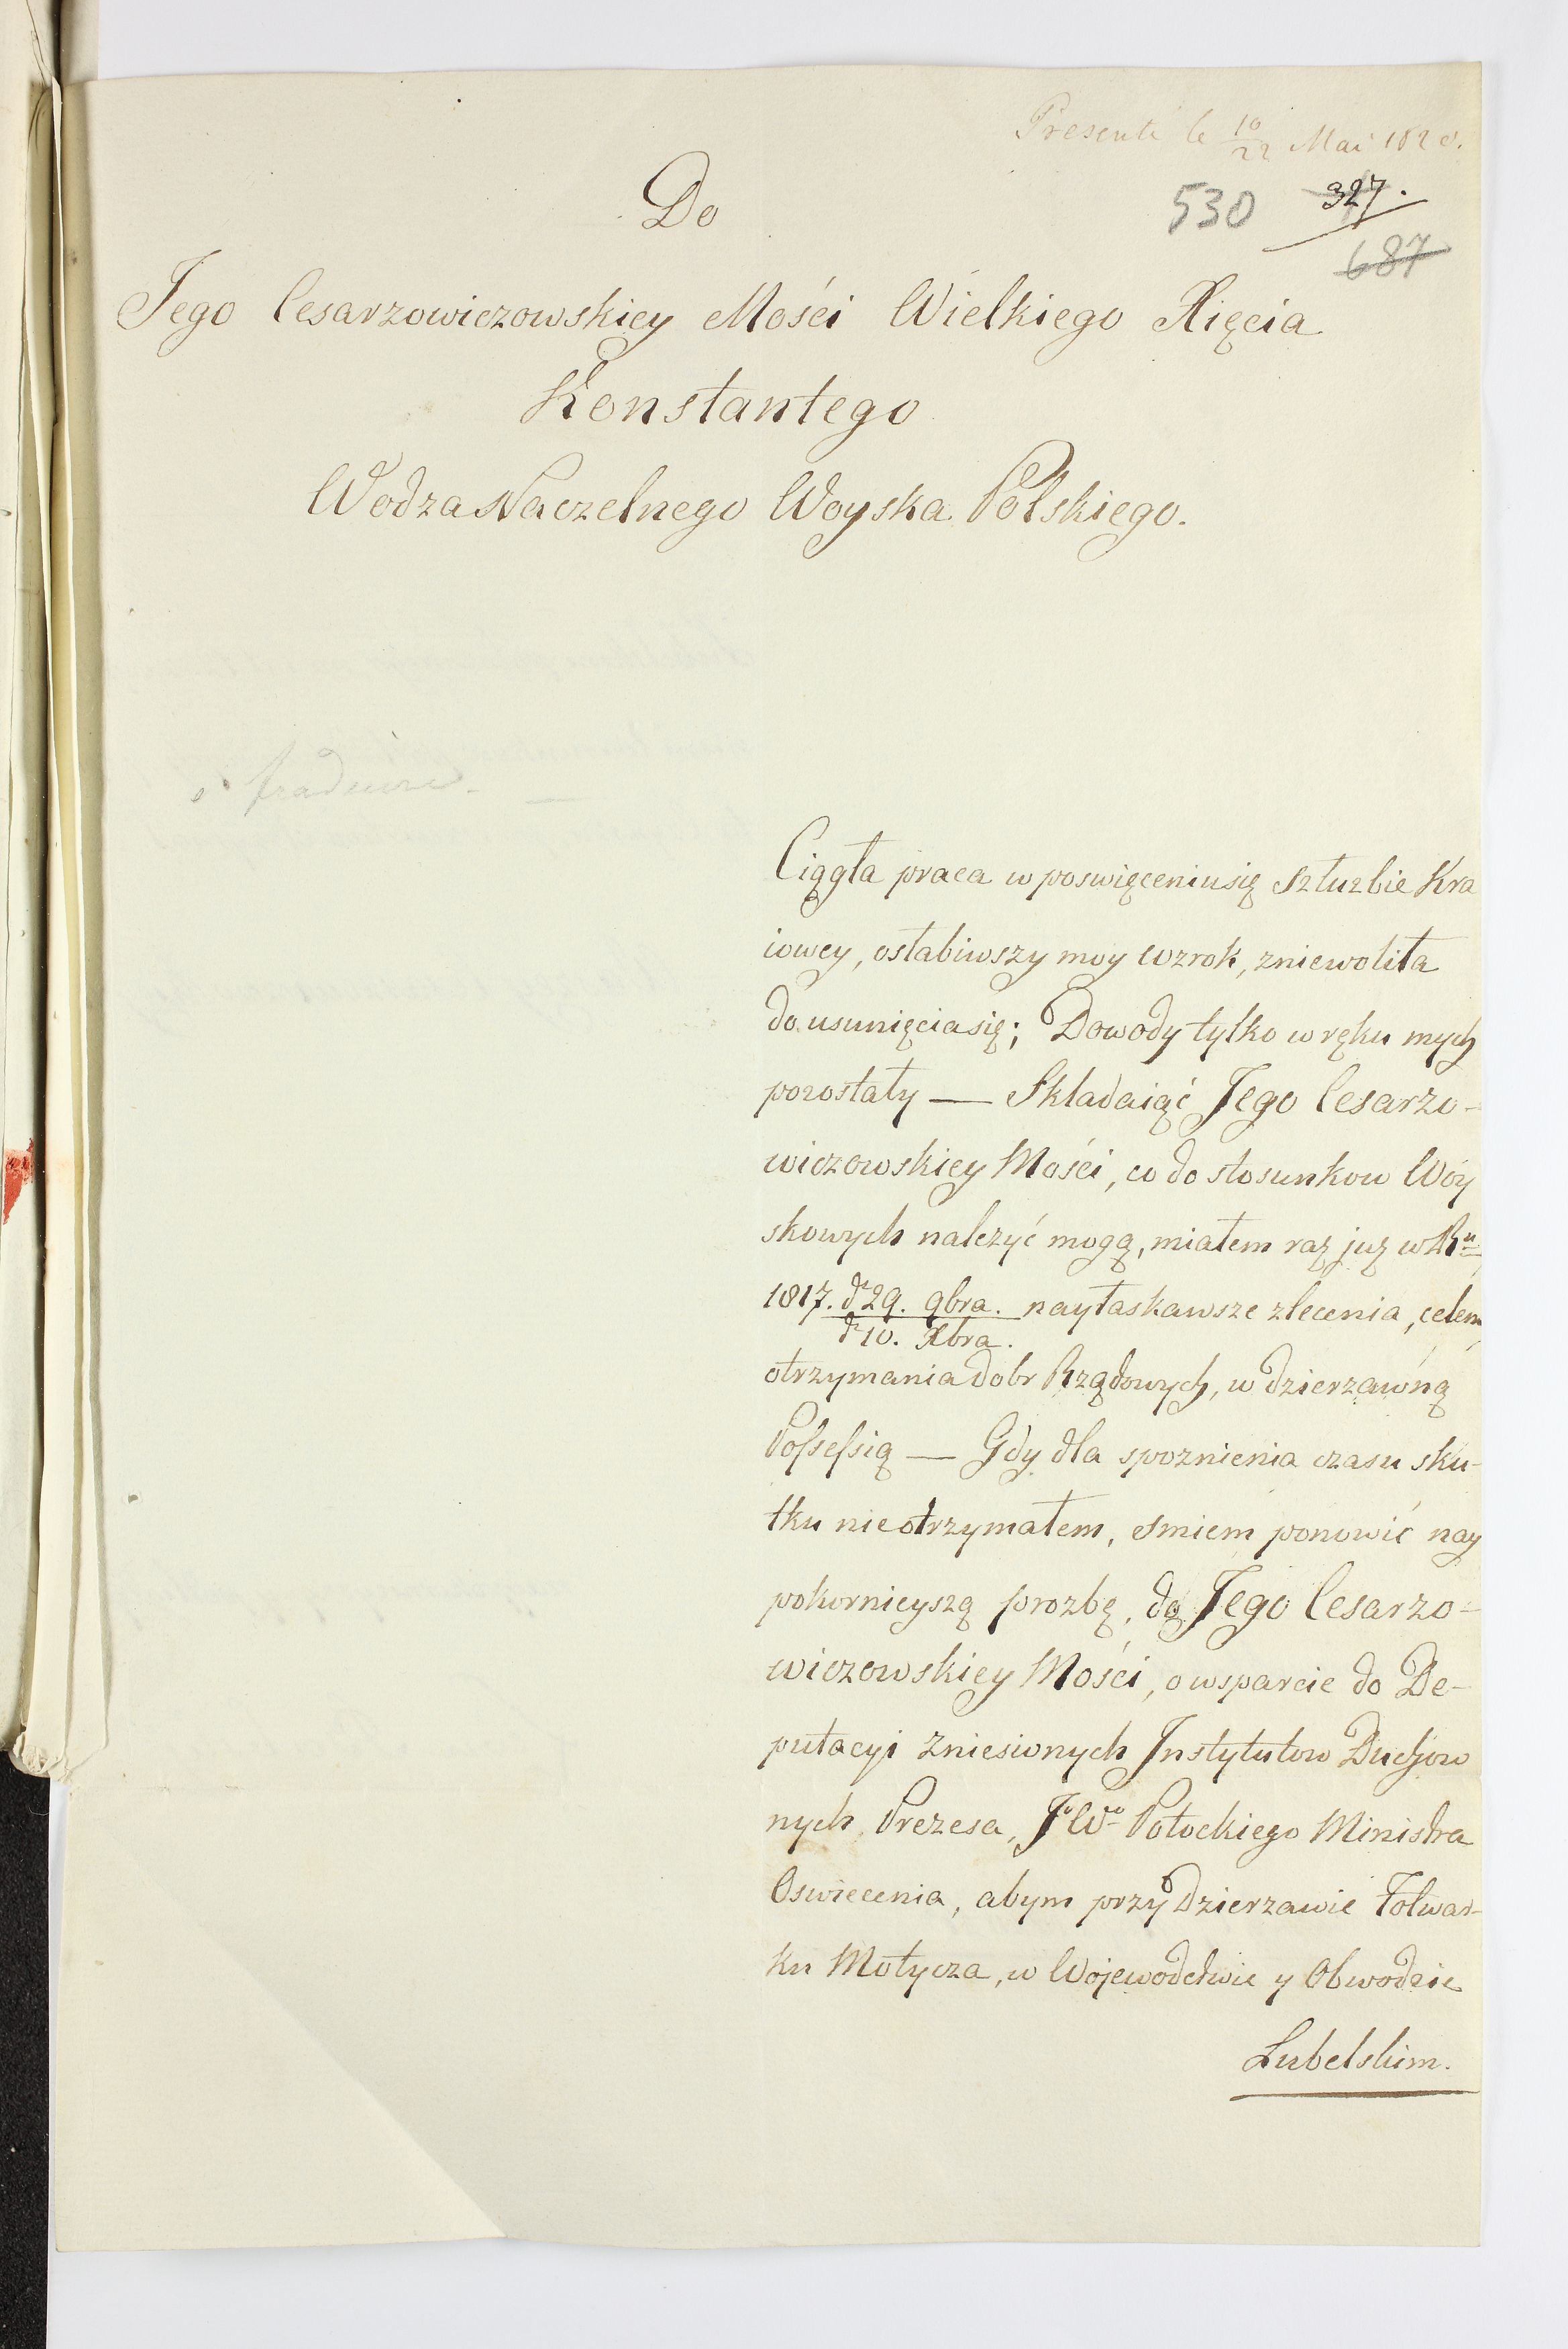 Presenté le 10/22 Mai 1820.
530 327.
687
Do
Jego Cesarzowiczowskiey Mości Wielkiego Xięcia
Konstantego
Wodza Naczelnego Woyska Polskiego.
Ciągła praca w poswięceniu się Szłuzbie Kra
iowey, osłabiwszy moy wzrok, zniewoliła
do usunięcia się; Dowody tylko w ręku mych
pozostały — Składaiąć Jego Cesarzo-
wiczowskiey Mości, co do stosunkow Woy
skowych należyć mogą, miałem raz już w Ru
1817. d 29. 9bra. nayłaskawsze zlecenia, celem
d 10. Xbra.
otrzymania dobr Rządowych, w dzierzawną
Possessią — Gdy dla spoznienia czasu sku-
tku nie otrzymałem, smiem ponowić nay
pokornieyszą prozbę, do Jego Cesarzo-
wiczowskiey Mości, o wsparcie do De-
putacyi Zniesionych Instytutow Duchow
nych Prezesa, JWo Potockiego Ministra
Oswiecenia, abym przy Dzierzawie Folwar-
ku Motycza, w Wojewodctwie y Obwodzie
Lubelskim.